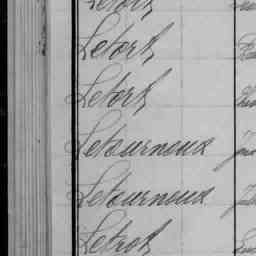 Letort
Letort
Letort
Letourneux
Letourneux
Letrot